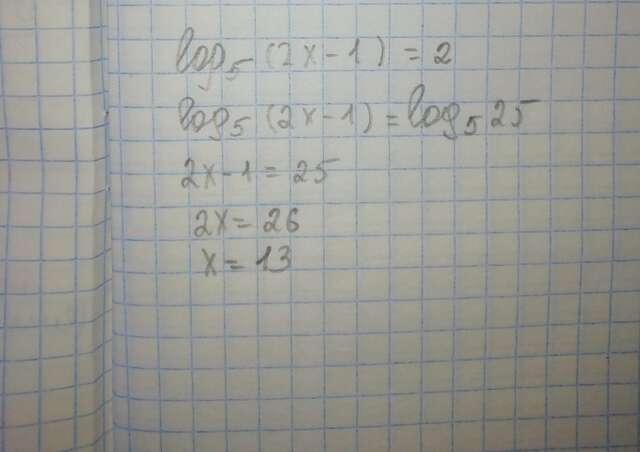 log₅ (2x-1) = 2
log₅ (2x-1) = log₅ 25
2x-1 = 25
2x = 26
x = 13